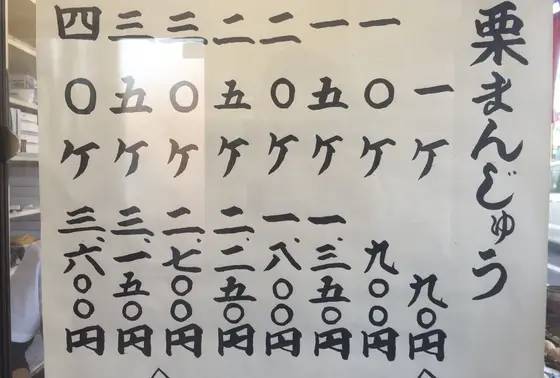 栗まんじゅう
一ケ 九〇円
一〇ケ 九〇〇円
一五ケ 一、三五〇円
二〇ケ 一、八〇〇円
二五ケ 二、二五〇円
三〇ケ 二、七〇〇円
三五ケ 三、一五〇円
四〇ケ 三、六〇〇円